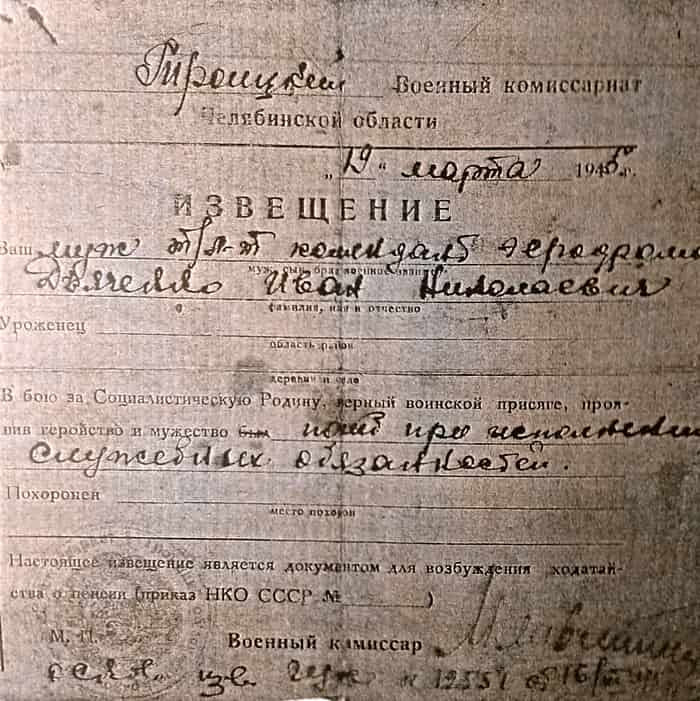 Троицкий Военный комиссариат
Челябинской области
„19" марта 1945 г.
ИЗВЕЩЕНИЕ
Ваш муж т/л-т комендант аеродрома
муж, сын, брат, военное звание
Дьяченко Иван Николаевич
фамилия, имя и отчество
Уроженец
область, район
деревня и село
В бою за Социалистическую Родину, верный воинской присяге, проя-
вив геройство и мужество был погиб при исполнении
служебных обязанностей.
Похоронен
место похорон
Настоящее извещение является документом для возбуждения ходатай-
ства о пенсии (приказ НКО СССР №)
М. П.
Военный комиссар
изв. № 12551 16/III